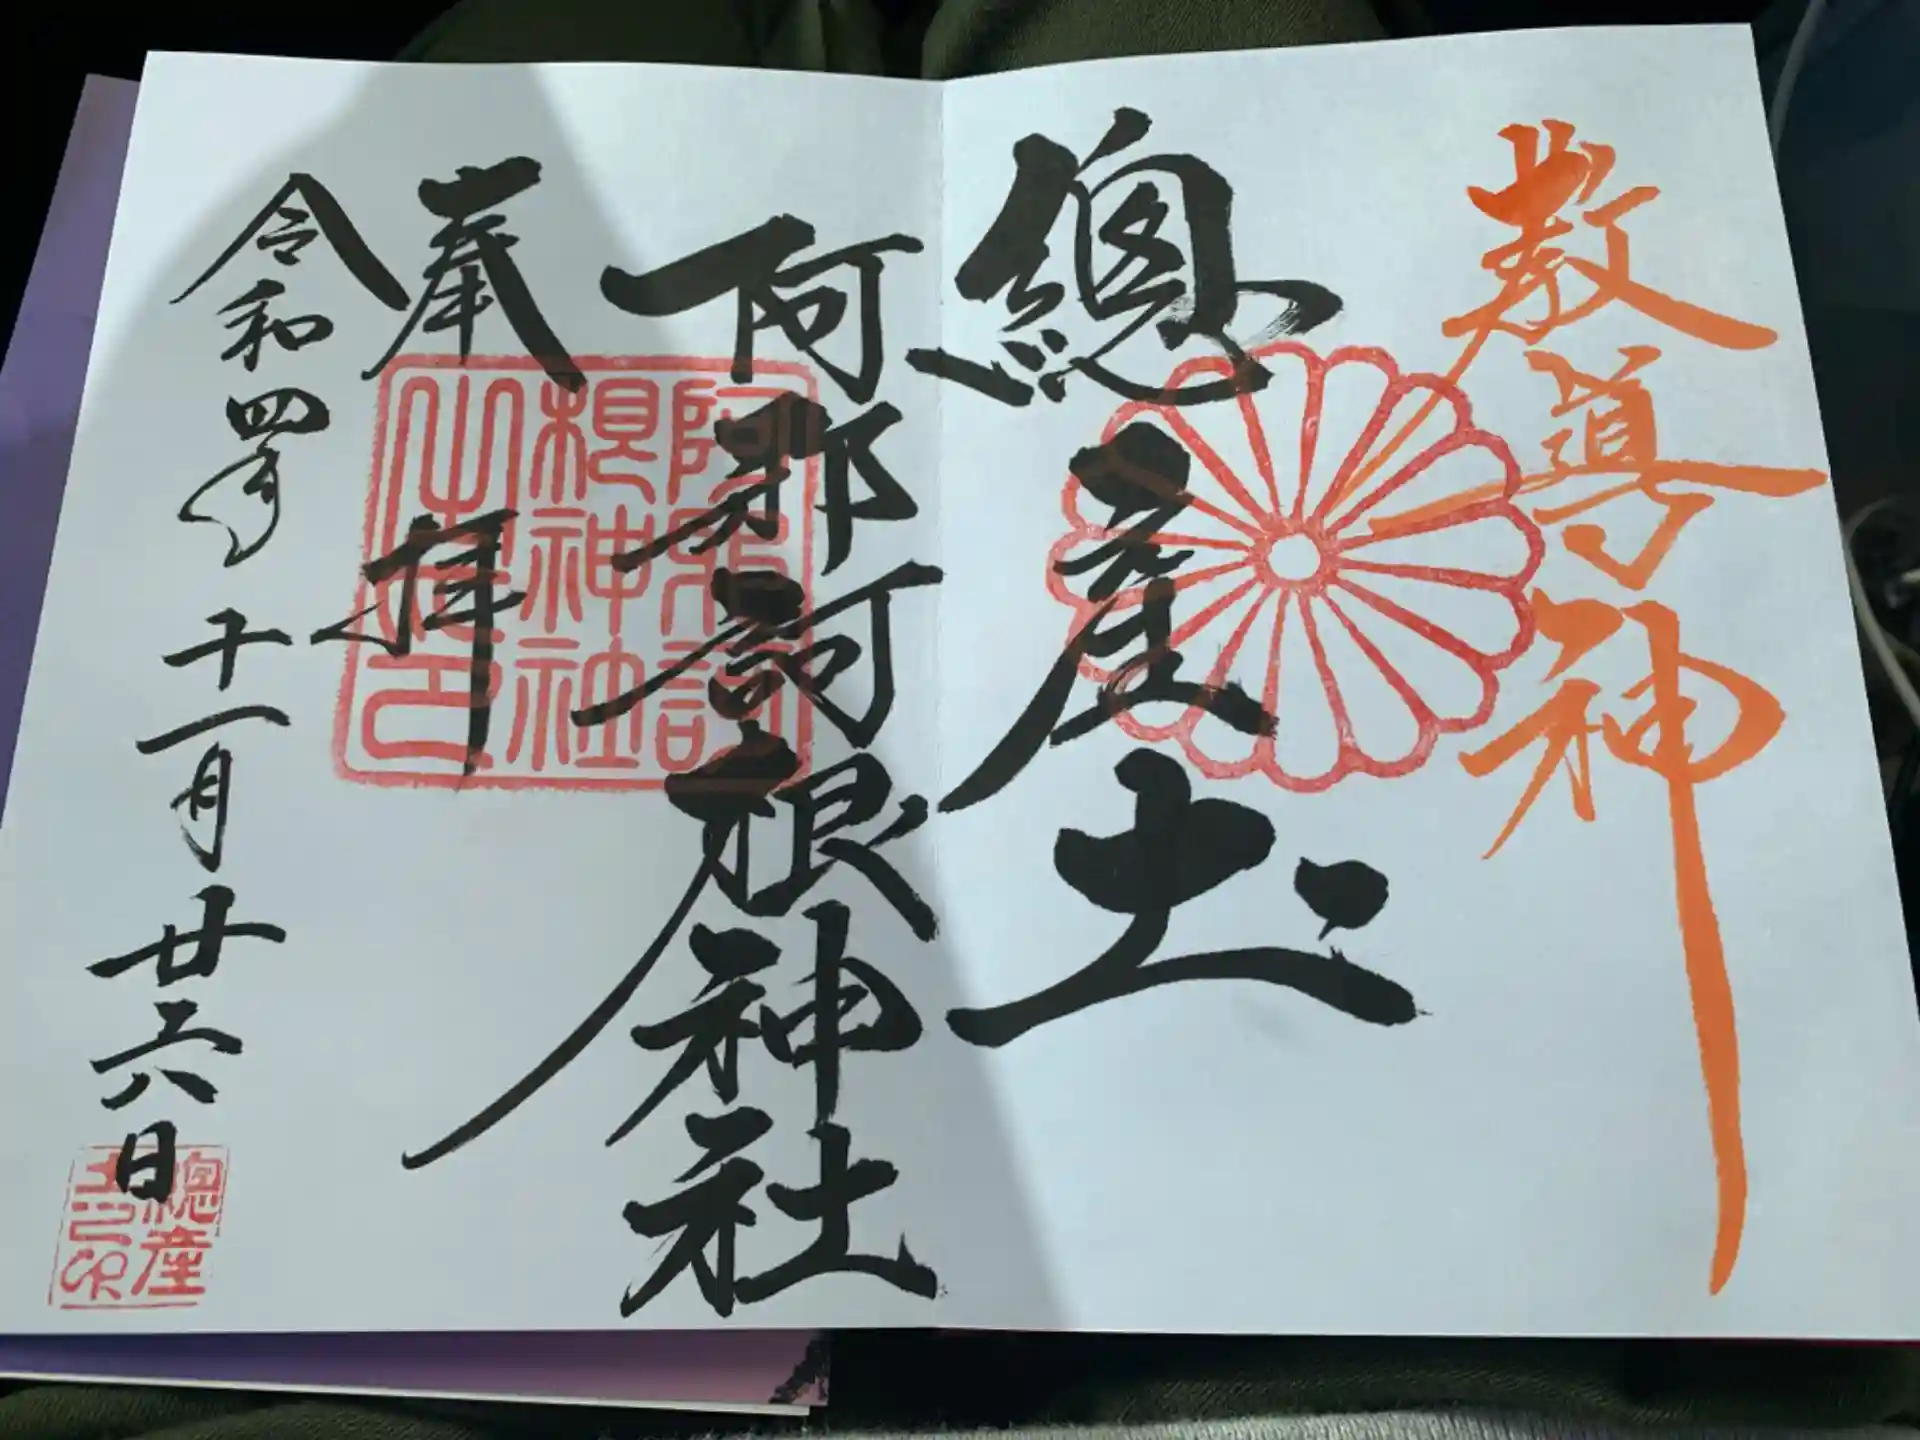 教導神
總産土
阿那訶根神社
奉拝
令和四年十一月廿六日
阿那訶
根神社
之印
總産
土之印